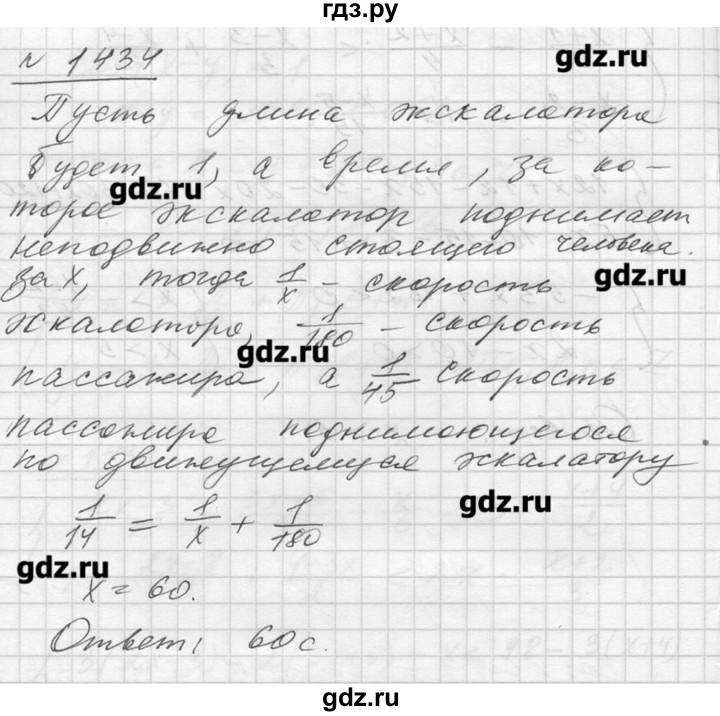 гдз.ру
№ 1434
gdz.ru
Пусть длина экскалатора
будет 1, а время, за ко-
gdz.ru
торое экскалатор поднимает
неподвижно стоящего человека.
за x, тогда 1/x - скорость
gdz.ru
экалатора, 1/180 - скорость
gdz.ru
пассажира, а 1/45 скорость
пассажира поднимающегося
по движущемуся экскалатору
gdz.ru
1/14 = 1/x + 1/180
gdz.ru
x = 60.
Ответ: 60 с.
gdz.ru